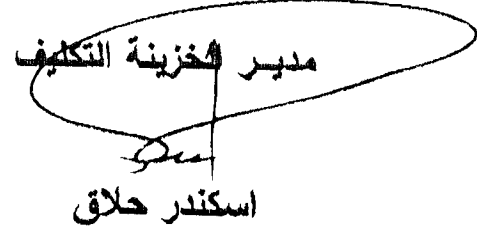 مدير الخزينة التكليف
اسكندر حلاق